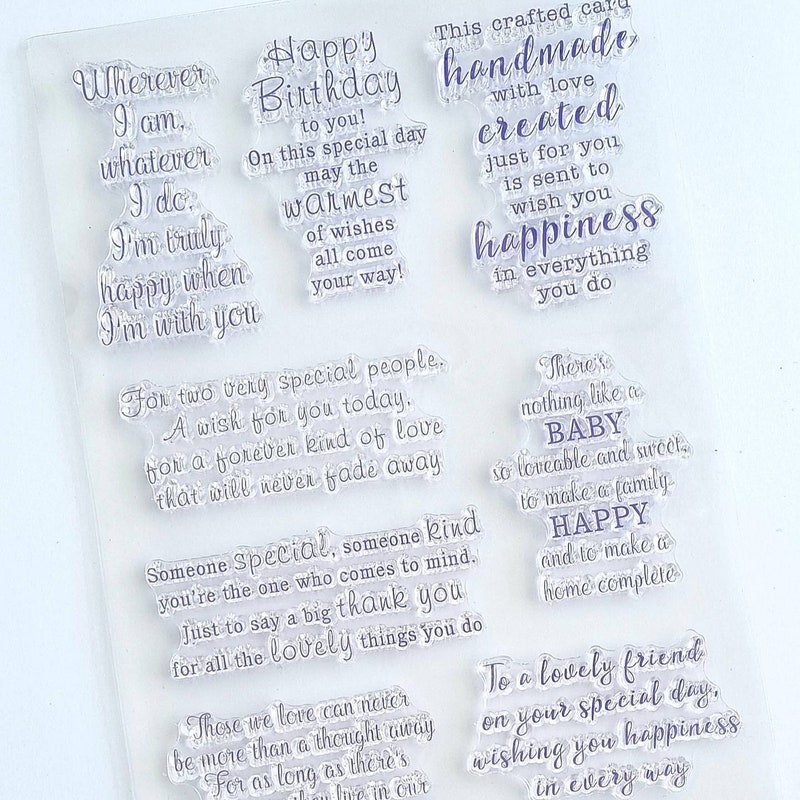 Wherever
I am,
whatever
I do,
I'm truly
happy when
I'm with you
Happy
Birthday
to you!
On this special day
may the
warmest
of wishes
all come
your way!
This crafted card
handmade
with love
created
just for you
is sent to
wish you
happiness
in everything
you do
For two very special people,
A wish for you today,
for a forever kind of love
that will never fade away
There's
nothing like a
BABY
so loveable and sweet,
to make a family
HAPPY
and to make a
home complete
Someone special, someone kind
you're the one who comes to mind.
Just to say a big thank you
for all the lovely things you do
Those we love can never
be more than a thought away
For as long as there's
they live in our
To a lovely friend
on your special day,
wishing you happiness
in every way